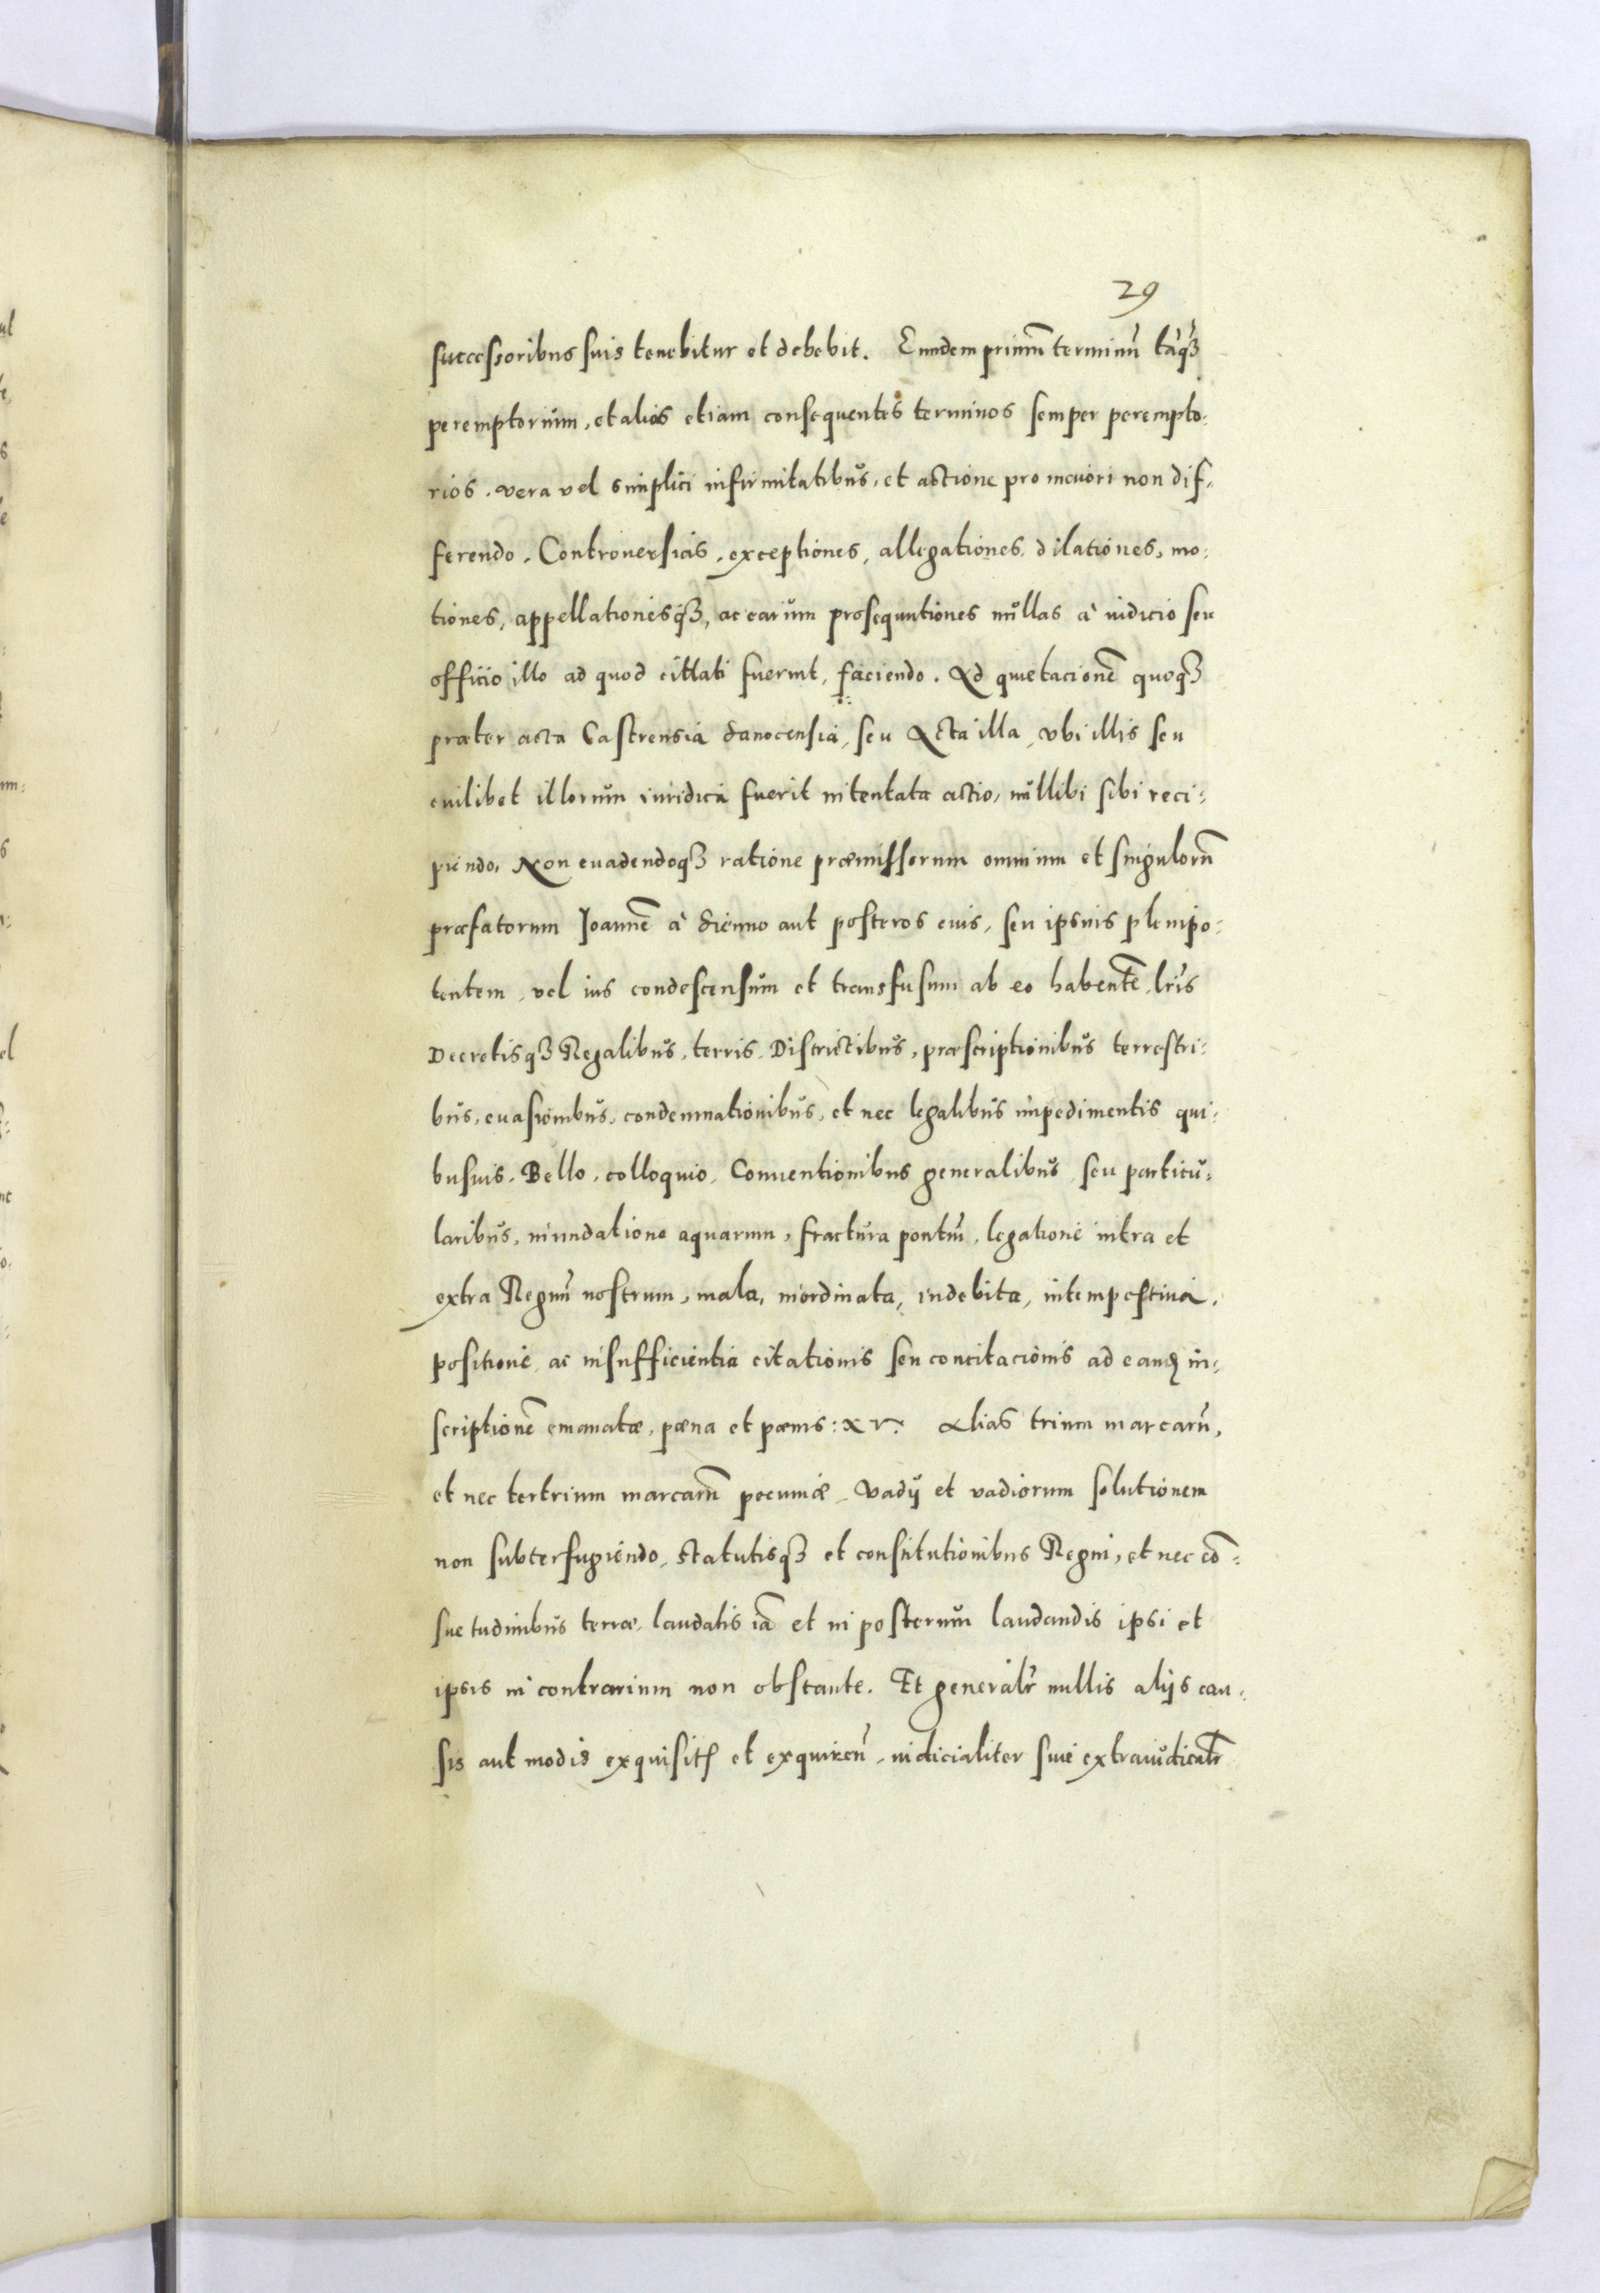 29
successoribus suis tenebitur et debebit. Eundem primũ terminũ tãq̃ʒ
peremptorium, et alios etiam consequentes terminos semper perempto:
rios. vera vel simplici infirmitatibus, et actione pro meuori non dif:
ferendo. Controuersias, exceptiones, allegationes, dilationes, mo:
tiones, appellationesqʒ, ac earum prosequutiones nullas à iudicio seu
officio illo ad quod cittati fuerint, faciendo. Ad quietacionẽ quoqʒ
præter acta Castrensia Sanocensia, seu Acta illa, vbi illis seu
cuilibet illorum iuridica fuerit intentata actio, nullibi sibi reci:
piendo, Non euadendoqʒ ratione præmissorum omnium et singulorũ
præfatorum Joannẽ à Sienno aut posteros eius, seu ipsius plenipo:
tentem, vel ius condescensum et transfusum ab eo habentẽ, lr̃is
Decretisqʒ Regalibus, terris, Districtibus, præscriptionibus terrestri:
bus, euasionibus, condemnationibus, et nec legalibus impedimentis qui:
busuis. Bello, colloquio, Conuentionibus generalibus seu particu:
laribus, inundatione aquarum, fractura pontiũ, legatione intra et
extra Regnũ nostrum, mala, inordinata, indebita, intempestiua,
positione ac insufficientia citationis seu concitacionis ad eandẽ in:
scriptionẽ emanatæ, pæna et pænis: XV. Alias trium marcarũ,
et nec tertrium marcarũ pecuniæ, Vadij et vadiorum solutionem
non subterfugiendo, statutisqʒ et constitutionibus Regni, et nec cõ:
suetudinibus terræ, laudatis iã et in posterum laudandis ipsi et
ipsis in contrarium non obstante. Et generalr̃ nullis alijs cau:
sis aut modis exquisitis et exquirẽn̄, iudicialiter siue extraiudicialr̃